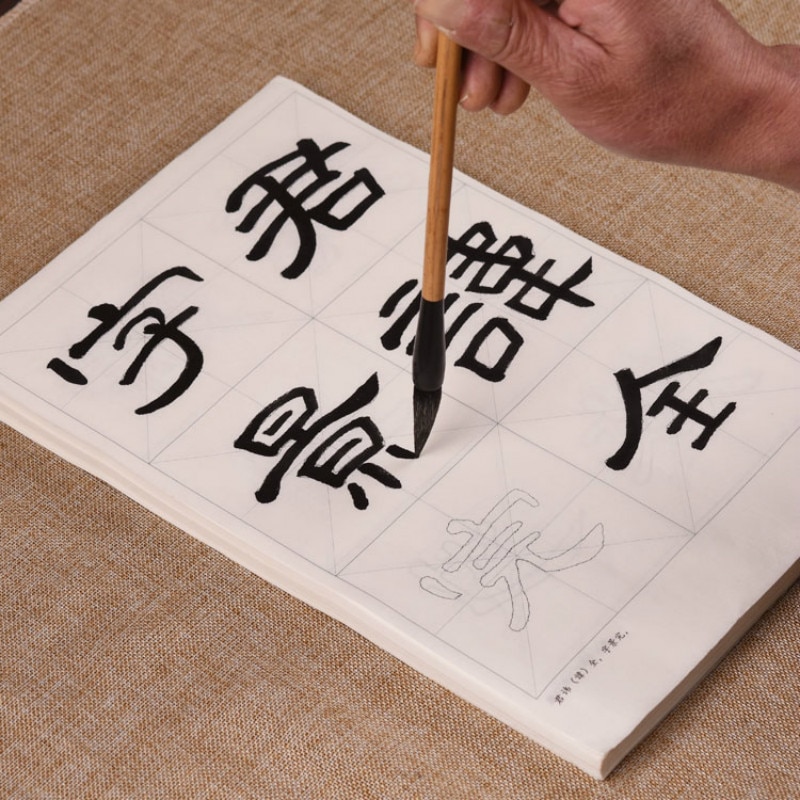 君諱全
字景完
君讳（諱）全，字景完。